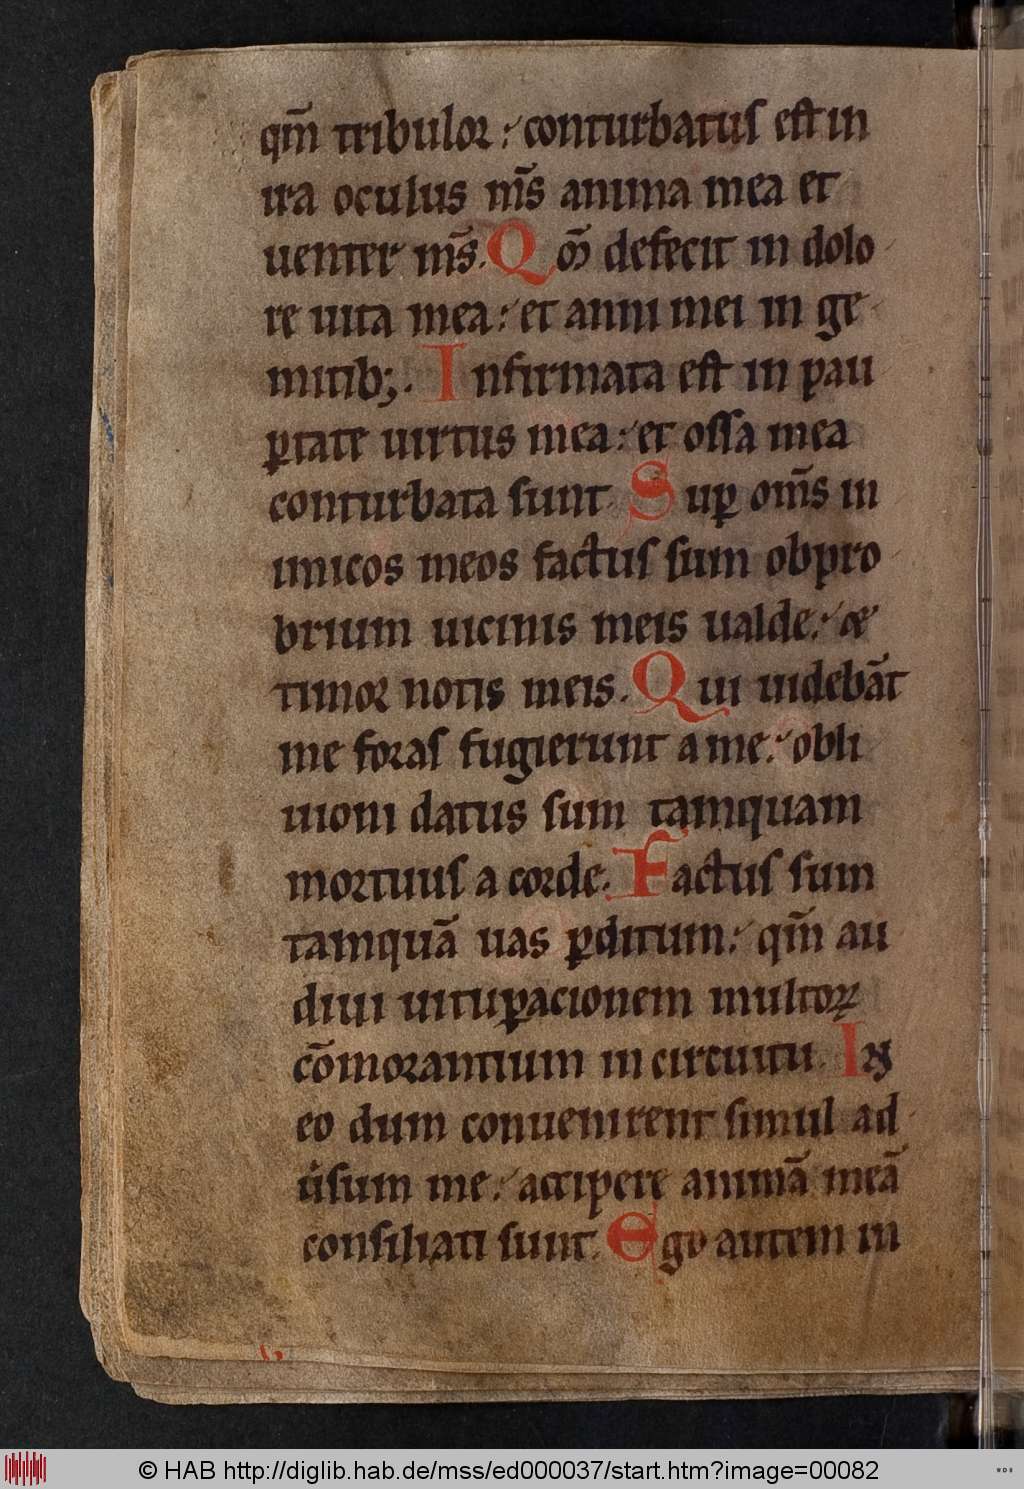 qm̄ tribulor: conturbatus est in
ira oculus m̄s anima mea et
uenter m̄s. Qōm defecit in dolo
re uita mea: et anni mei in ge
mitib;. Infirmata est in pau
ꝑtate uirtus mea: et ossa mea
conturbata sunt. Suꝑ om̄s in
imicos meos factus sum obpro
brium uicinis meis ualde: &
timor notis meis. Qui uidebāt
me foras fugierunt a me: obli
uioni datus sum tamquam
mortuus a corde. Factus sum
tamquā uas ꝑditum: qm̄ au
diui uituꝑacionem multoꝝ
cōmorantium in circuitu. In
eo dum conuenirent simul ad
u̕sum me: accipere animā meā
consiliati sunt. Ego autem in
© HAB http://diglib.hab.de/mss/ed000037/start.htm?image=00082